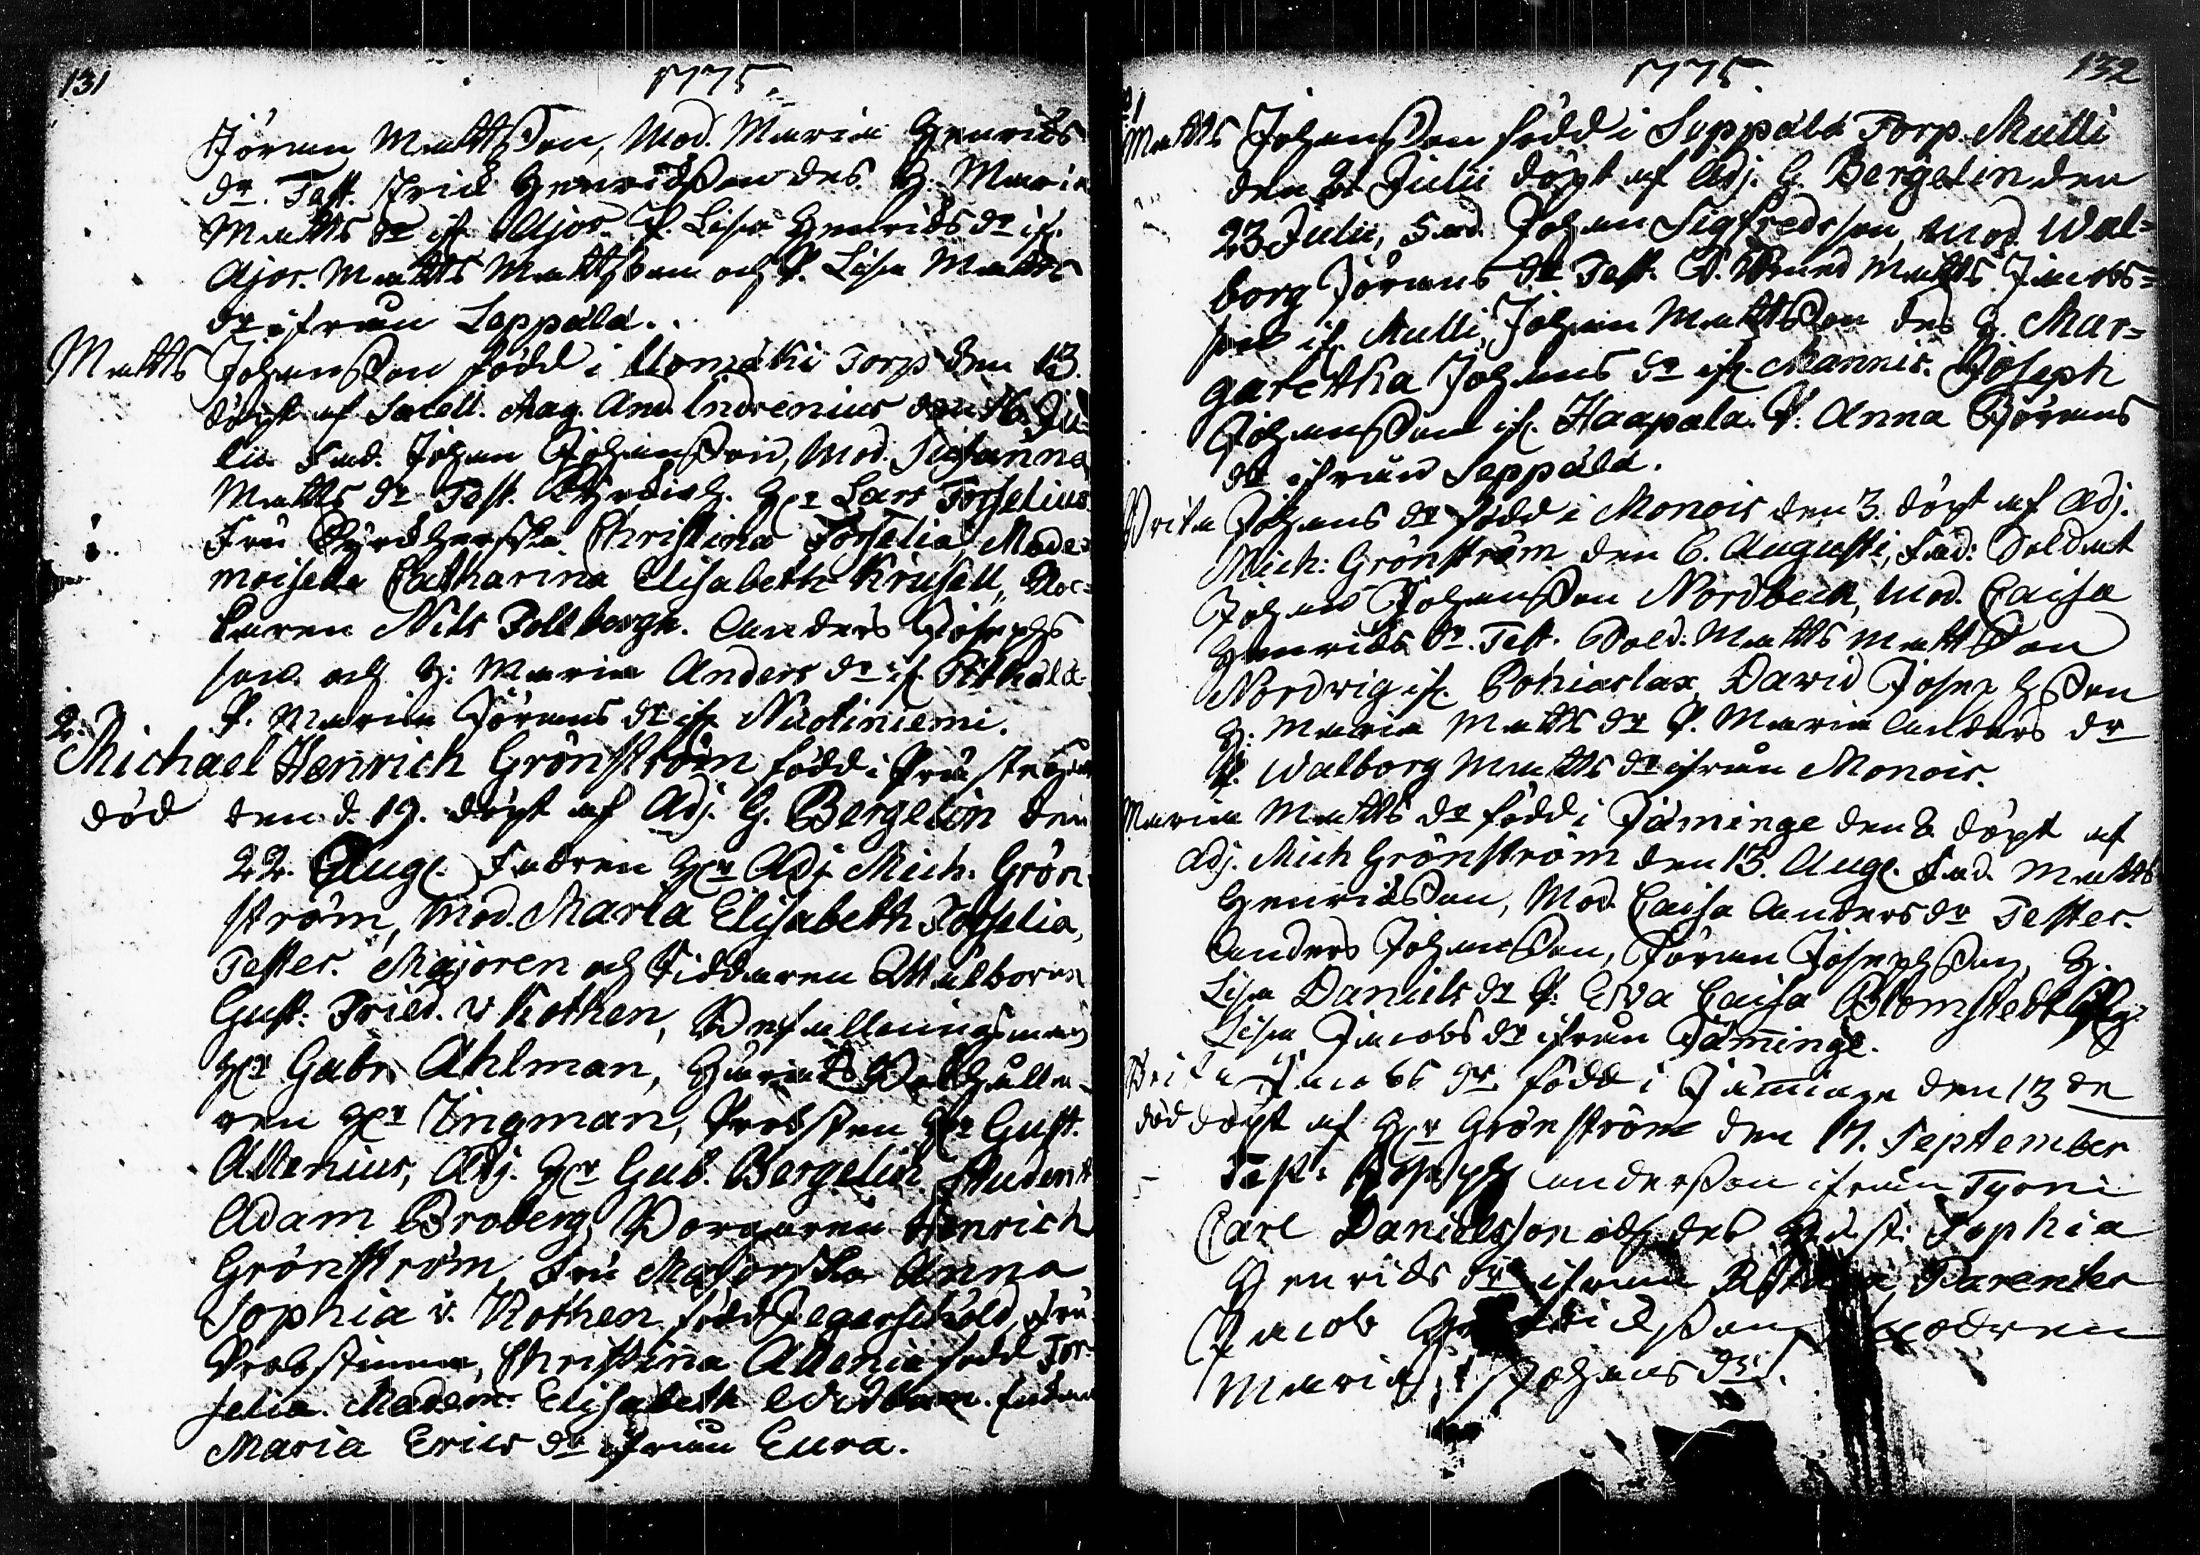 131
1775.
Jöran Mattsson, Mod. Maria Henrics
dr. Test. Henricsson des H. Maria
Matts dr if. Ajos. P. Lisa Henrics dr if.
Ajos. Matts Mattsson och P. Lisa Matts
dr ifrån Seppälä.
Matts Johansson född i Torp den 13.
döpt af Sacell. Mag. And. Indrenius den 16. Ju-
lii. Fad. Johan Johansson, Mod. Susanna
Matts dr Test. Hr Lars Forselius
Fru Christina Forselia, Made-
moiselle Catharina Elisabeth Krusell,
Nils Anders Josephs
son och H: Maria Anders dr if.
P. Maria Jörans dr if.
2.
Michael Henrich Grönström född i
död den d. 19. döpt af Adj. G. Bergelin den
22. Aug. Fadren Hr Adj. Mich. Grön-
ström, Mod. Maria Elisabeth Forselia,
Testes. Majoren och Riddaren Wälborne
Gust. Fried. v Kothen, Befallningsman
Hr Gabr. Ahlman, Härads
ren Hr Ingman, Probsten Hr Gust.
Allenius, Adj. Hr Gab. Bergelin Student
Adam Broberg, Borgaren Henrich
Grönström, Fru Majorska Anna
Sophia v. Kothen född Jegerschöld, Fru
Probstinnan, Christina Allenia född For-
selia. Madem. Elisabeth
Maria Erics dr ifrån Eura.
132
1775
Matts Johansson född i Seppälä Torp Mulli
den 21 Julii döpt af Adj. G. Bergelin den
23 Julii, Fad. Johan Sigfredsson, Mod. Wal-
borg Jörans dr Test. Matts Jacobs-
son if. Mulli, Johan Mattsson des H. Mar-
garetha Johans dr if. Mannis. Joseph
Johansson if. Haapala. P. Anna Jörans
dr ifrån Seppälä.
Brita Johans dr född i Monois den 3. döpt af Adj.
Mich: Grönström den 6. Augusti, Fad: Soldat
Johan Johansson Nordbeck, Mod. Caisa
Henrics dr. Test. Sold. Matts Mattsson
Nordwig if. Pohiaslax, David Josephsson
H: Maria Matts dr P. Maria Anders dr
P. Walborg Matts dr ifrån Monois.
Maria Matts dr född i Jäminge den döpt af
Adj. Mich Grönström den 13. Aug. Fad. Matts
Henricsson, Mod. Caisa Anders dr Testes.
Anders Johansson, Jöran Josephsson, H.
Lisa Daniels dr P. Eva Caisa Blomstedt
Lisa Jacobs dr ifrån Jäminge.
Brita Jacobs dr. född i Jäminge den 13 de
död döpt af Hr Grönström den 17. September
Test: Joseph Andersson ifrån Tyoni
Carl Danielsson och des Hust: Sophia
Henrics dr ifrån Parentes
Jacob Modren
Maria Johans dr.